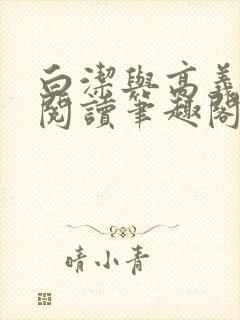 白潔與高義
閱讀筆趣閣
晴小青